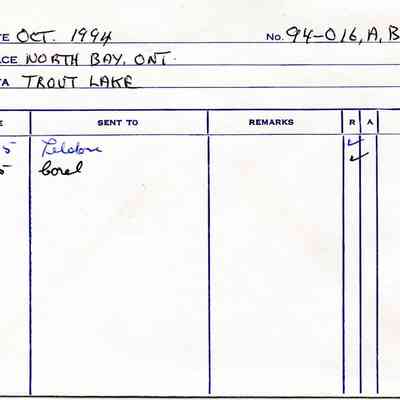 TE OCT. 1994 No. 94-016, A, B
ACE NORTH BAY, ONT.
TA TROUT LAKE
E SENT TO REMARKS R A
5 ✓
5 Corel ✓